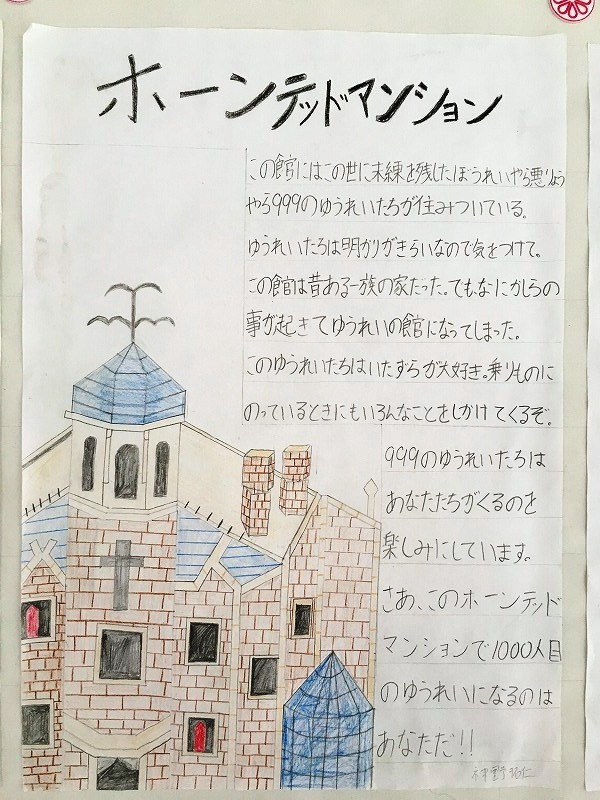 ホーンテッドマンション
この館にはこの世に未練を残したぼうれいやら悪りょう
やら999のゆうれいたちが住みついている。
ゆうれいたちは明かりがきらいなので気をつけて。
この館は昔ある一族の家だった。でもなにかしらの
事が起きてゆうれいの館になってしまった。
このゆうれいたちはいたずらが大好き。乗りものに
のっているときにもいろんなことをしかけてくるぞ。
999のゆうれいたちは
あなたたちがくるのを
楽しみにしています。
さあ、このホーンテッド
マンションで1000人目
のゆうれいになるのは
あなただ!!